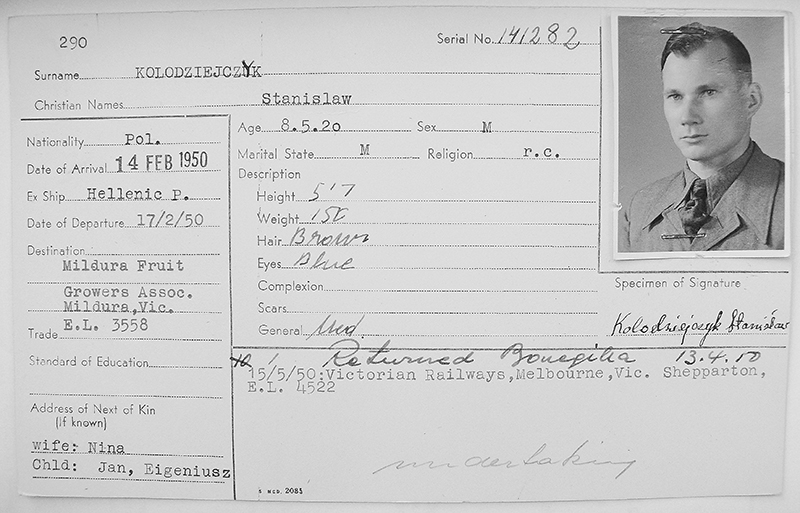 290
Serial No. 141282
Surname KOLODZIEJCZYK
Christian Names Stanislaw
Nationality Pol.
Date of Arrival 14 FEB 1950
Ex Ship Hellenic P.
Date of Departure 17/2/50
Destination
Mildura Fruit
Growers Assoc.
Mildura,Vic.
Trade E.L. 3558
Standard of Education
Address of Next of Kin
(If known)
wife: Nina
Chld: Jan, Eigeniusz
Age 8.5.20 Sex M
Marital State M Religion r.c.
Description
Height 5'7
Weight 150
Hair Brown
Eyes Blue
Complexion
Scars
General Med
Specimen of Signature
Kolodziejczyk Stanisław
Returned Bonegilla 13.4.50
15/5/50:Victorian Railways,Melbourne,Vic. Shepparton,
E.L. 4522
undertaking
S MED. 2085